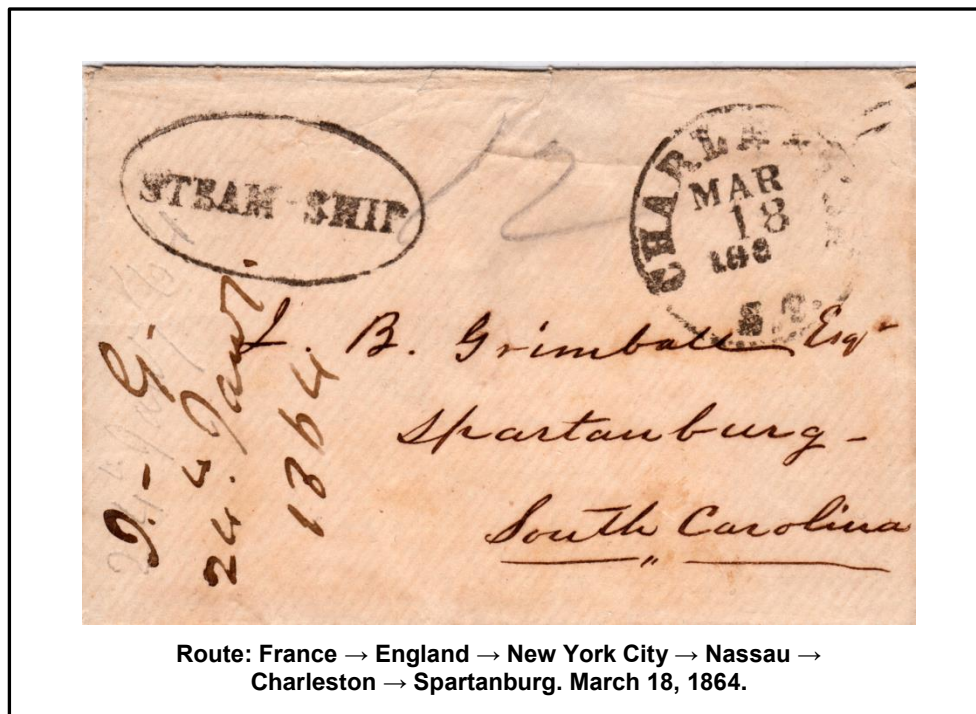 STEAM-SHIP
12
CHARLESTON
MAR
18
186
S.C.
J. B. Grimball Esqr
Spartanburg-
South Carolina
J. - G.
24. Jany.
1864
Route: France → England → New York City → Nassau →
Charleston → Spartanburg. March 18, 1864.